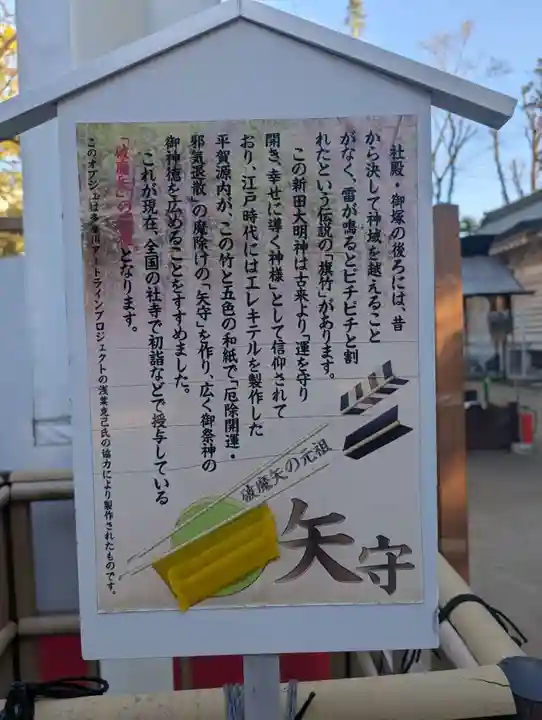 社殿・御塚の後ろには、昔
から決して神域を越えること
がなく、雷が鳴るとピチピチと割
れたという伝説の「旗竹」があります。
この新田大明神は古来より「運を守り
開き、幸せに導く神様」として信仰されて
おり、江戸時代にはエレキテルを製作した
平賀源内が、この竹と五色の和紙で「厄除開運・
邪気退散」の魔除けの「矢守」を作り、広く御祭神の
御神徳を広めることをすすめました。
これが現在、全国の社寺で初詣などで授与している
「破魔矢の元祖」となります。
このオブジェは多摩川アートラインプロジェクトの浅葉克己氏の協力により製作されたものです。
破魔矢の元祖
矢守